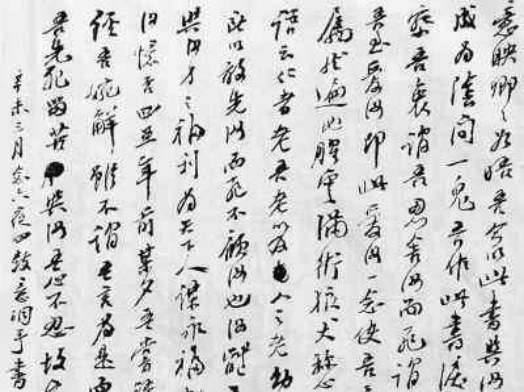 意映卿〻如晤吾今以此書與汝
成為陰間一鬼吾作此書淚
察吾衷謂吾忍舍汝而死謂
吾至愛汝即此愛汝一念使吾
屬然遍地腥雲滿街狼犬稱心
語云仁者老吾老以及人之老幼
所以敢先汝而死不顧汝也汝體
與汝身之福利為天下人謀永福
汝憶否四五年前某夕吾嘗語
經吾婉解雖不謂吾言為是而
吾先死留苦與汝吾心不忍故
辛未三月念六夜四鼓意洞手書